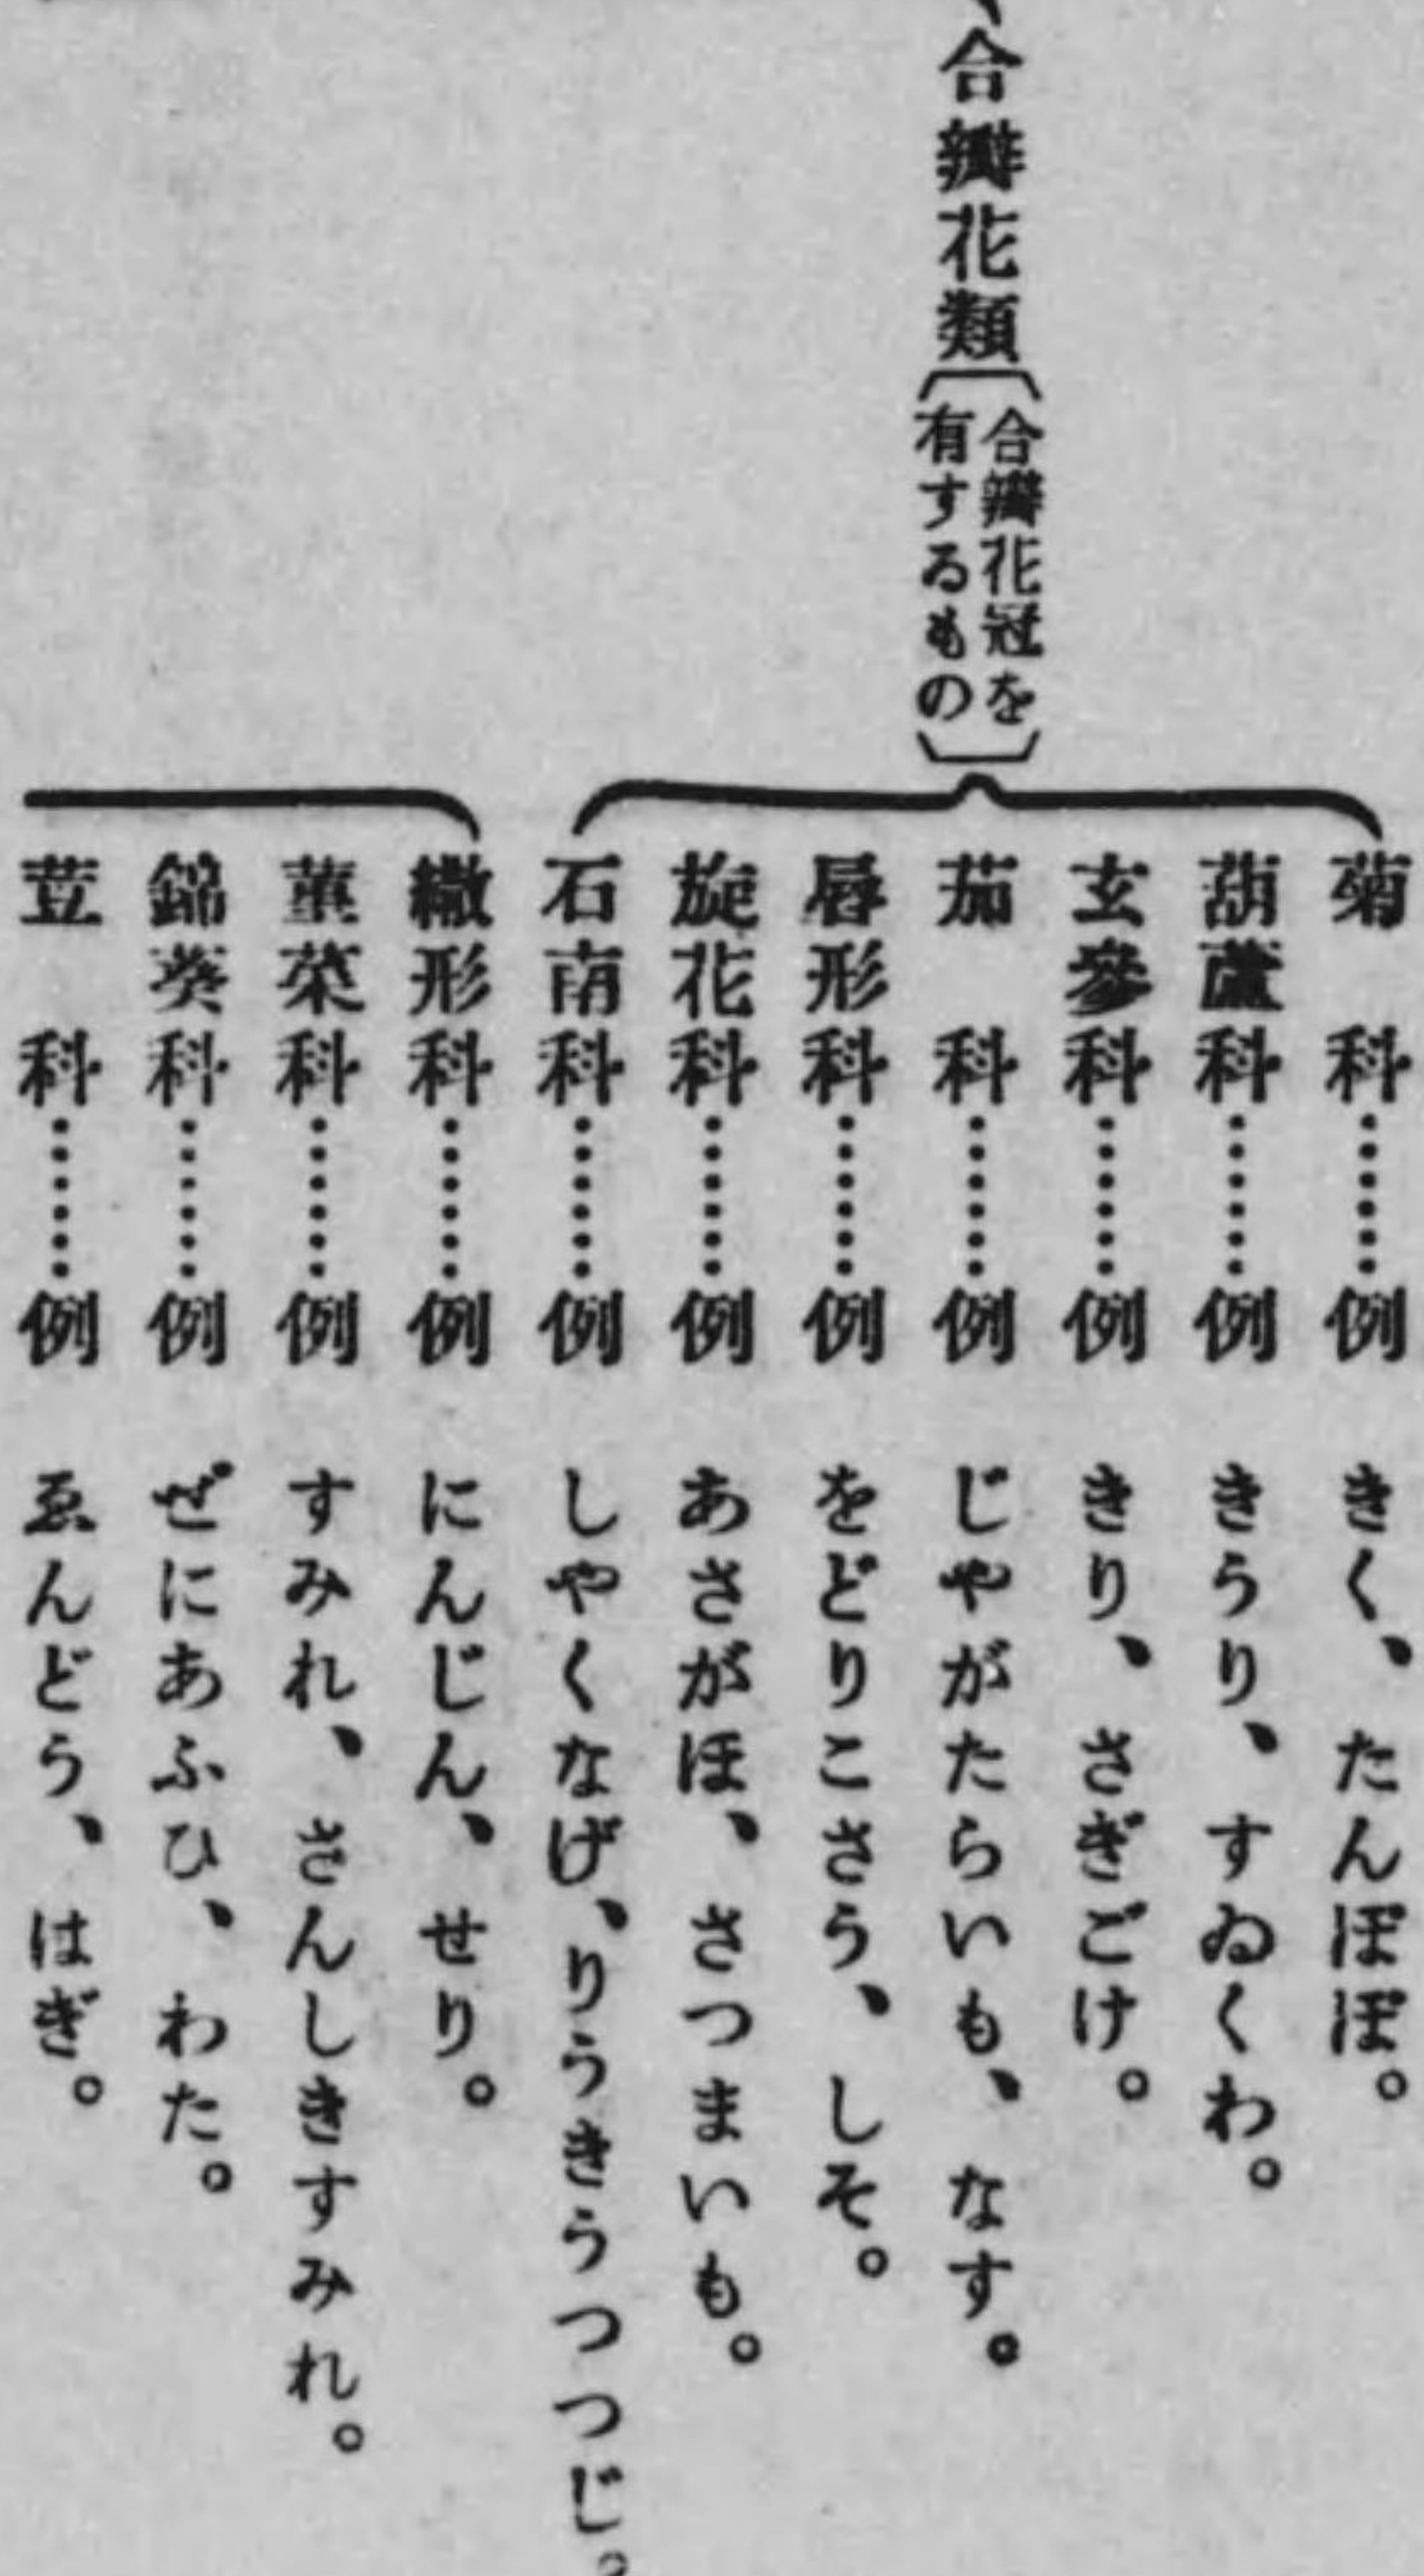 合瓣花類
合瓣花冠を
有するもの
菊科……例 きく、たんぽぽ。
葫蘆科……例 きうり、すゐくわ。
玄參科……例 きり、さぎごけ。
茄科……例 じやがたらいも、なす。
唇形科……例 をどりこさう、しそ。
旋花科……例 あさがほ、さつまいも。
石南科……例 しやくなげ、りうきうつつじ。
繖形科……例 にんじん、せり。
菫菜科……例 すみれ、さんしきすみれ。
錦葵科……例 ぜにあふひ、わた。
荳科……例 ゑんどう、はぎ。